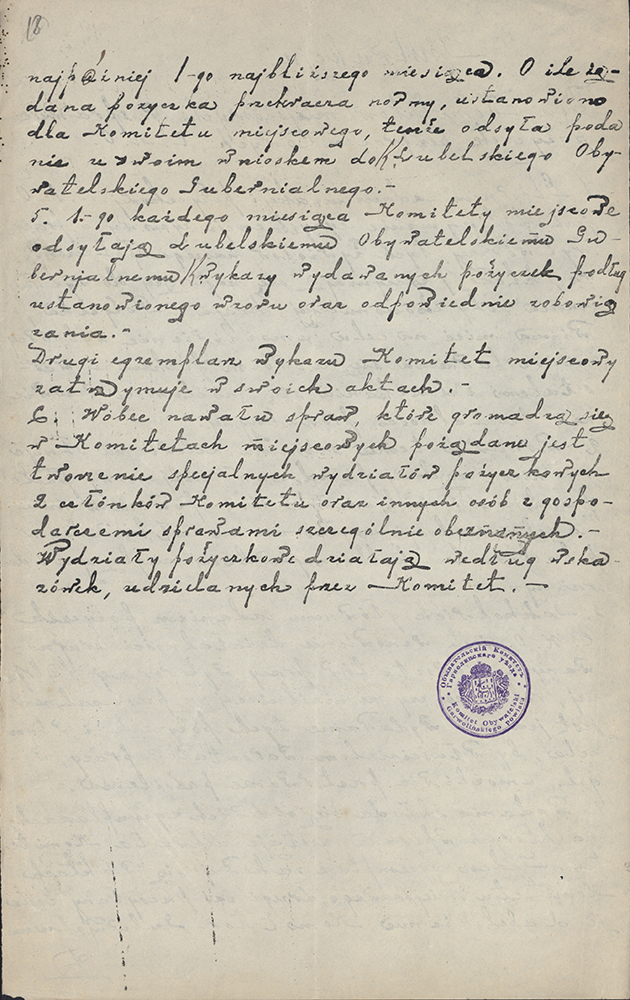 18
najpóźniej 1-go najbliższego miesiąca. O ile żą-
dana pożyczka przekracza normy, ustanowiono
dla Komitetu miejscowego, tenże odsyła poda
nie ze swoim wnioskem do K. Lubelskiego Oby-
watelskiego Gubernialnego.-
5. 1.-go każdego miesiąca Komitety miejscowe
odsyłają Lubelskiemu Obywatelskiemu Gu-
bernjalnemu K. wykazy wydawanych pożyczek podług
ustanowionego wzoru oraz odpowiednie zobowią
zania.-
Drugi egzemplarz wykazu Komitet miejscowy
zatrzymuje w swoich aktach.-
6. Wobec nawału spraw, które gromadzą się
w Komitetach miejscowych pożądane jest
tworzenie specjalnych wydziałów pożyczkowych
z członków Komitetu oraz innych osób z gospo-
darczemi sprawami szczególnie obeznanych.-
Wydziały pożyczkowe działają według wska-
zówek, udzielanych przez Komitet.-
Обывательскій Комитетъ
Гарволинскаго уѣзда
Komitet Obywatelski
Garwolińskiego powiatu